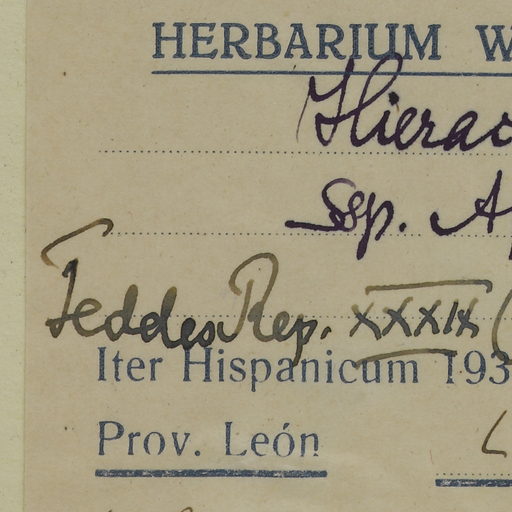 HERBARIUM W
Hierac
Ssp. A
Feddes Rep. XXXIX (
Iter Hispanicum 193
Prov. León